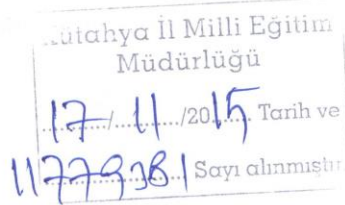 ütahya İl Milli Eğitim
Müdürlüğü
17/11/2015 Tarih ve
11779381 Sayı alınmıştır